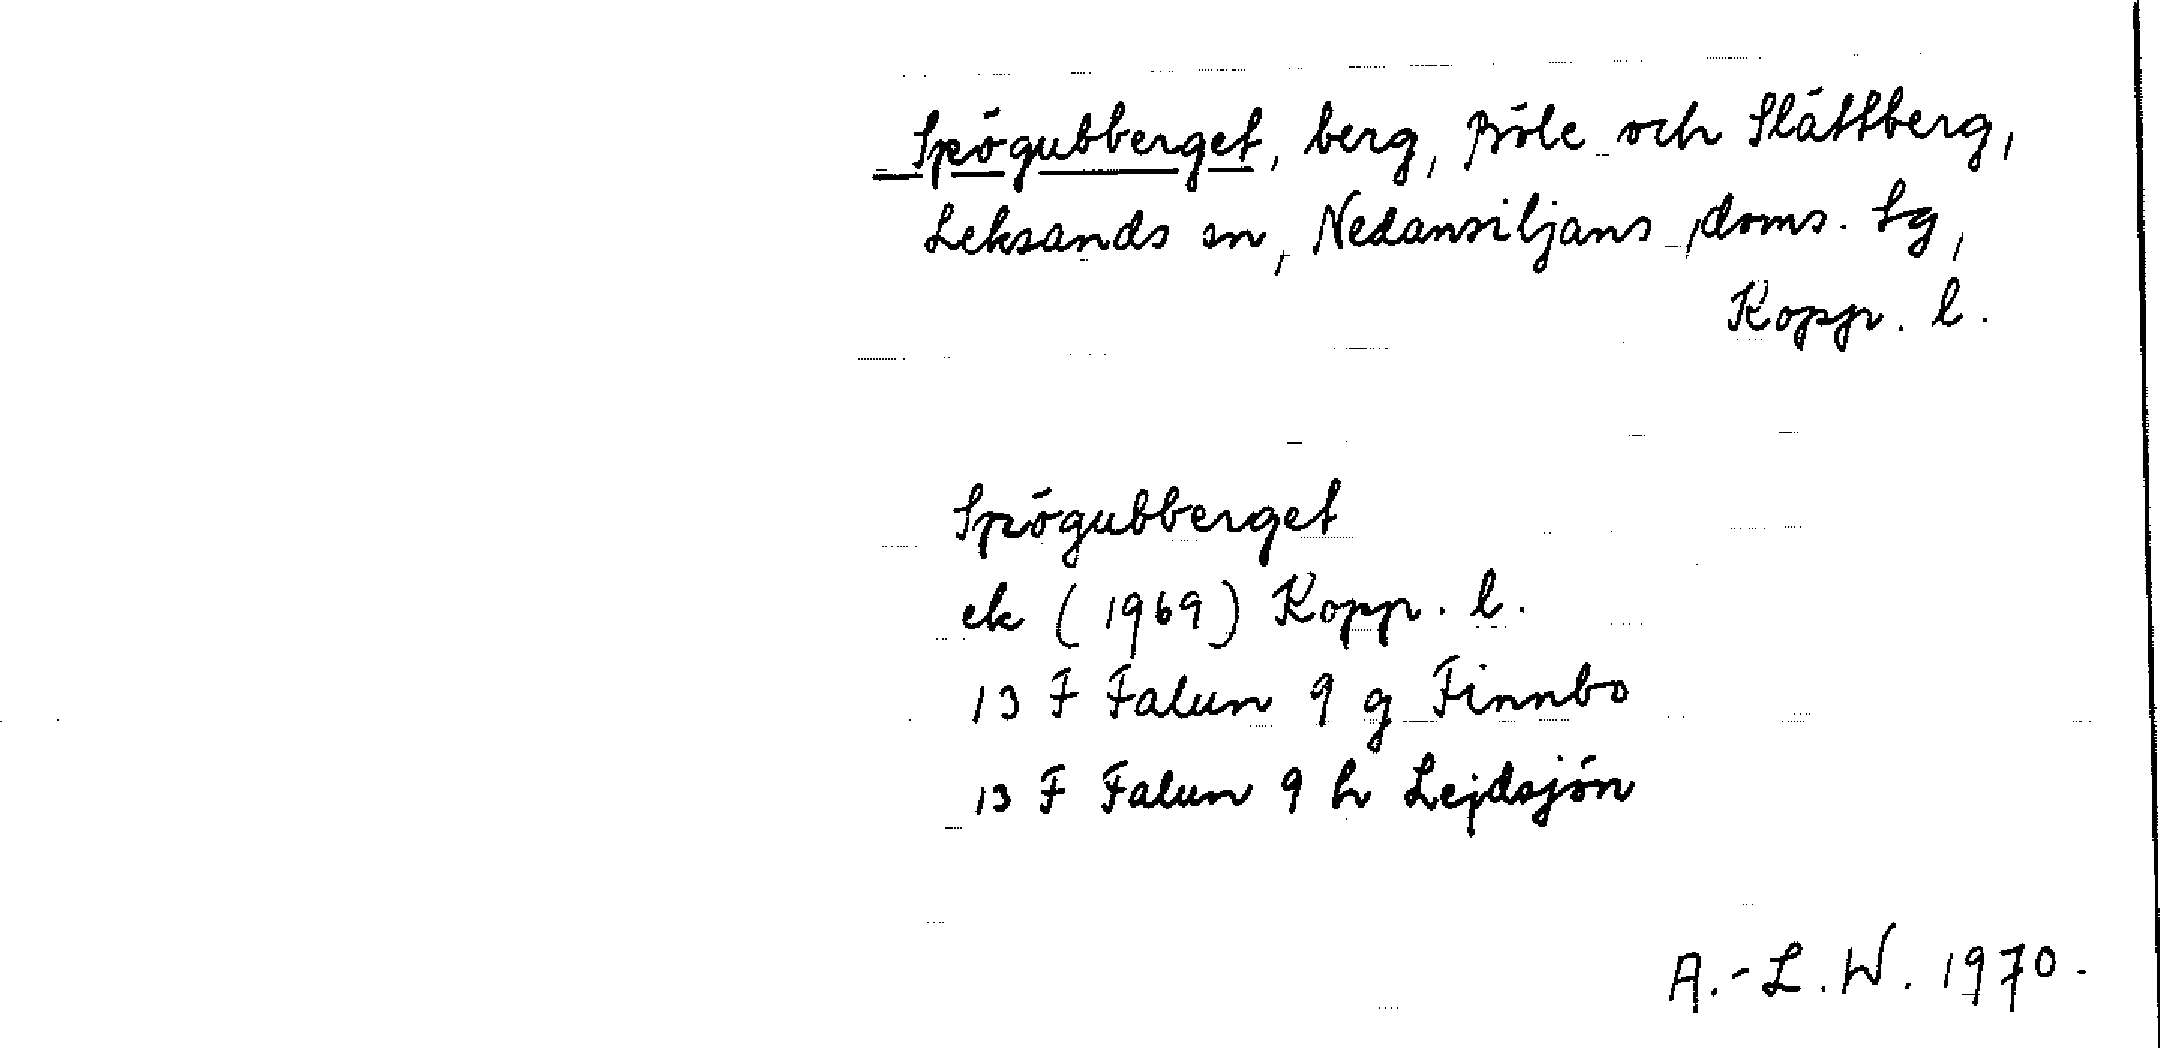 Spögubberget, berg, Böle och Slättberg,
Leksands sn, Nedansiljans doms. tg,
Kopp. l.
Spögubberget
ek (1969) Kopp. l.
13 F Falun 9 g Finnbo
13 F Falun 9 h Lejdsjön
A.-L.W. 1970.